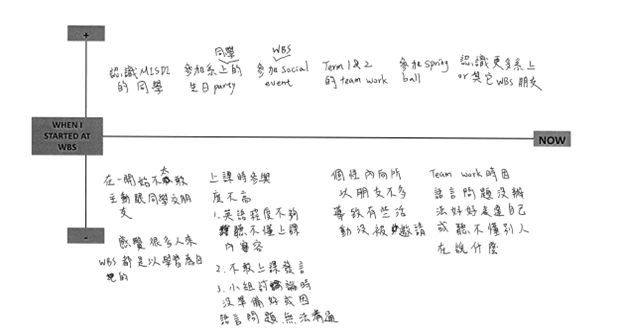 +
同學
WBS
認識MISDI
的同學
參加系上的
生日party
參加social
event
Term 1&2
的team work
參加spring
ball
認識更多系上
or其它WBS朋友
WHEN I
STARTED AT
WBS
NOW
在一開始不太敢
主動跟同學交朋
友
感覺很多人來
WBS都是以學習為目
的
上課時參與
度不高
1.英語程度不夠
聽不懂上課
內容
2.不敢上課發言
3.小組討論時
沒準備好或因
語言問題無法溝通
個性內向所
以朋友不多
導致有些活
動沒被邀請
Team work時因
語言問題沒辦
法好好表達自己
或聽不懂別人
在說什麼
-